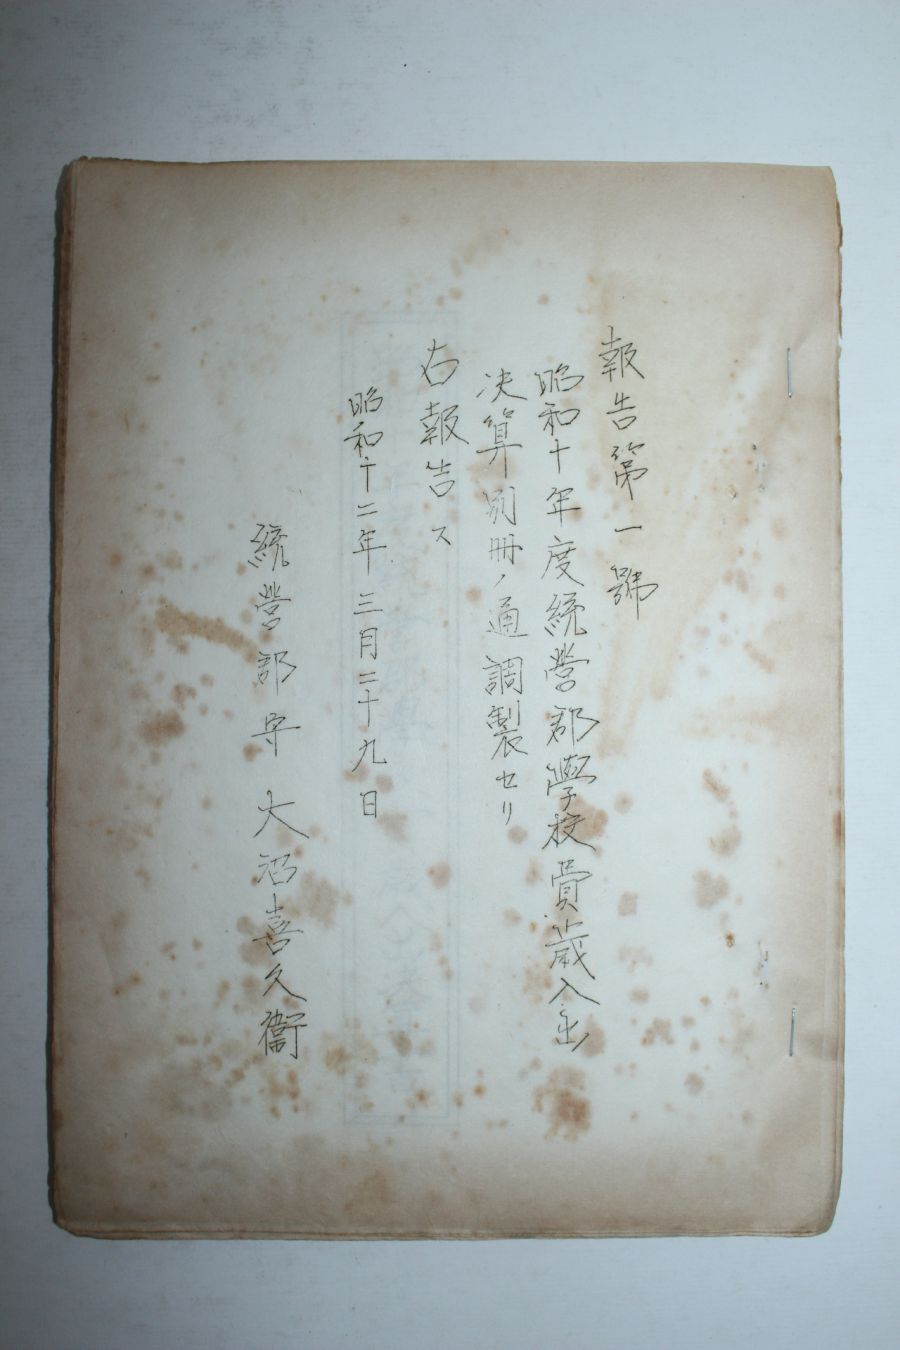 報告第一號
昭和十年度統營郡學校費歳入出
決算別冊ノ通調製セリ
右報告ス
昭和十二年三月二十九日
統營郡守 大沼喜久衞